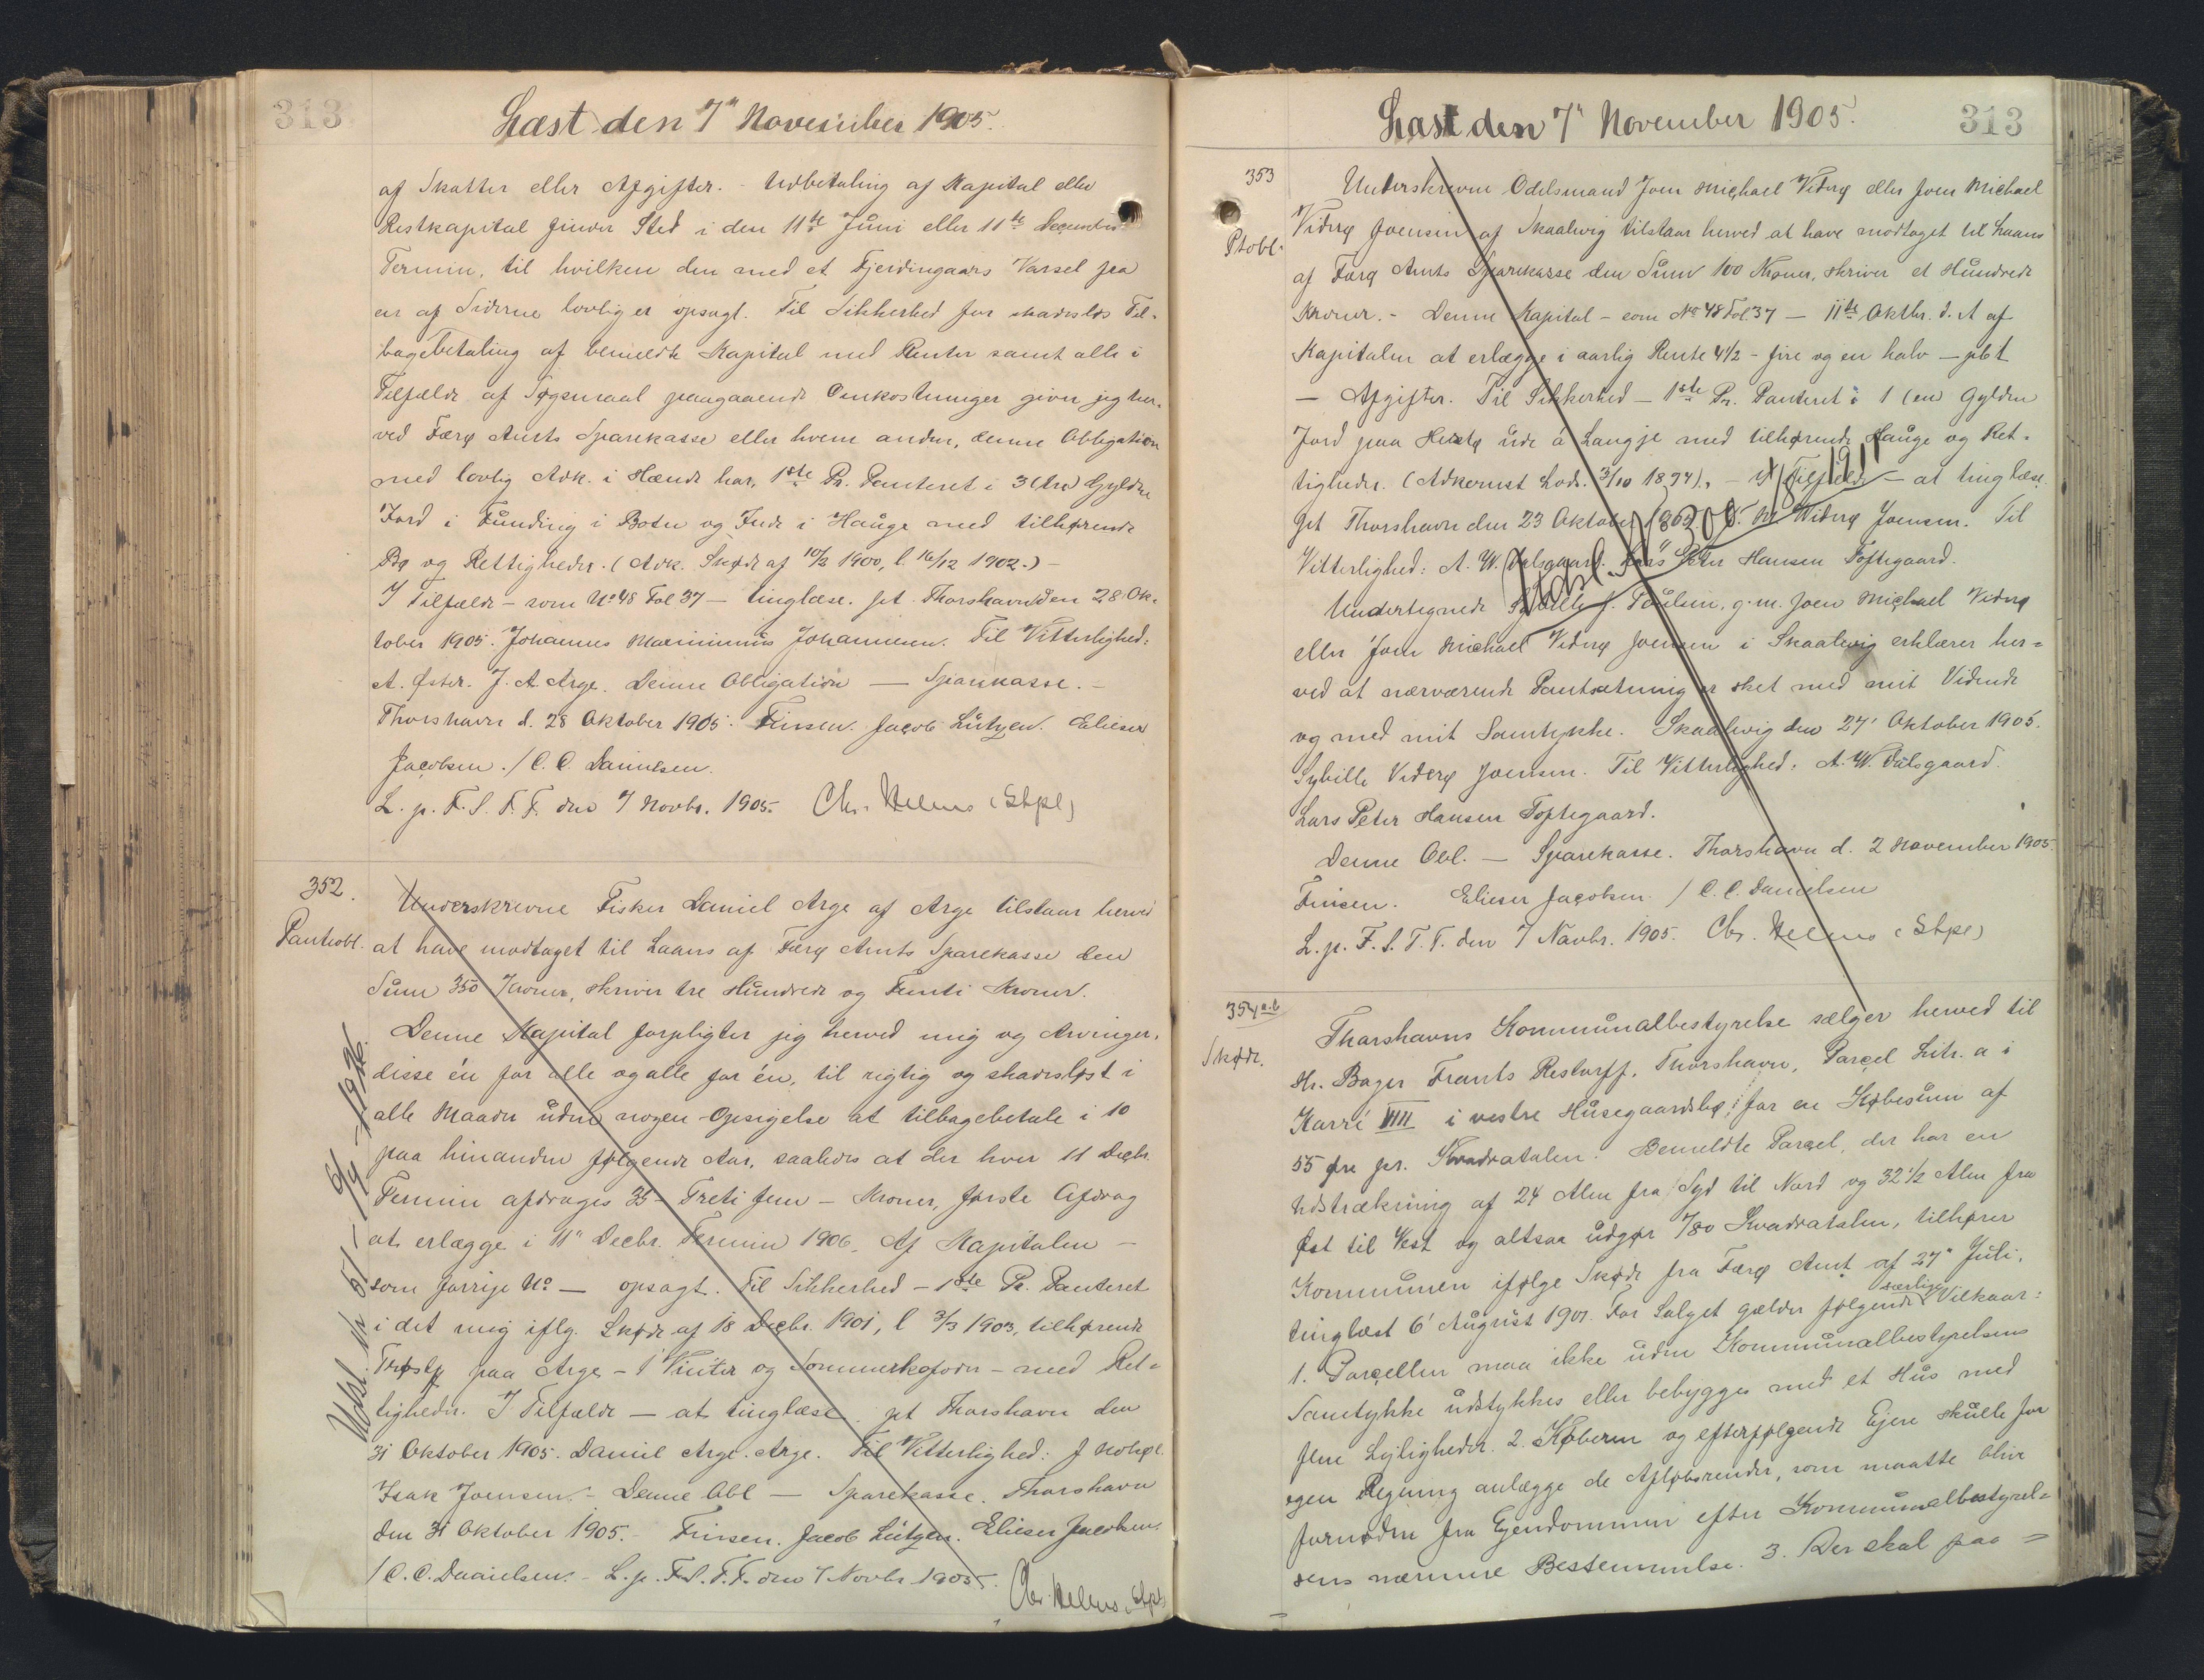 313
Læst den 7" November 1905.
af Skatter eller Afgifter. - Udbetaling af Kapital eller
Restkapital finder Sted i den 11te Juni eller 11te December
Termin, til hvilken den med et Fjerdingaars Varsel fra
en af Siderne lovlig er opsagt. Til Sikkerhed for skadesløs Til-
bagebetaling af bemeldte Kapital med Renter samt alle i
Tilfælde af Søgsmaal paagaaende Omkostninger giver jeg her-
ved Færø Amts Sparekasse eller hvem anden, denne Obligation
med lovlig Adk. i Hænde har, 1ste Pr. Panteret i 3 (tre) Gylden
Jord i Funding i Boten og Inde i Hauge med tilhørende
Bø og Rettigheder. (Adk. Skøde af 10/2 1900, l. 16/12 1902.) -
I Tilfælde - som No 48 Fol 37 - tinglæse. pt. Thorshavn den 28 Ok-
tober 1905. Johannes Johannesen. Til Vitterlighed:
A. Øster. J. A. Arge. Denne Obligation — Sparekasse. -
Thorshavn d. 28 Oktober 1905. Finsen. Jacob Lützen. Elieser
Jacobsen. / C. C. Danielsen.
L. p. F. S. T. F. den 7 Novbr. 1905. Chr. Helms (Stpl)
352.
Pantobl.
Underskrevne Fisker Daniel Arge af Arge tilstaar herved
at have modtaget til Laans af Færø Amts Sparekasse den
Sum 350 Kroner, skriver tre Hundrede og Femti Kroner.
Denne Kapital forpligter jeg herved mig og Arvinger,
disse én for alle og alle for én, til rigtig og skadesløst i
alle Maader uden nogen Opsigelse at tilbagebetale i 10
paa hinanden følgende Aar, saaledes at der hver 11 Decbr.
Termin afdrages 35 - Treti fem - Kroner, første Afdrag
at erlægge i 11" Decbr. Termin 1906. Af Kapitalen -
som forrige No — opsagt. Til Sikkerhed - 1ste Pr. Panteret
i det mig iflg. Skøde af 18 Decbr. 1901, l 3/3 1903, tilhørende
paa Arge - 1 Vinter og Sommerkofoder - med Ret-
tigheder. I Tilfælde — at tinglæse. pt Thorshavn den
31 Oktober 1905. Daniel Arge. Arge. Til Vitterlighed: J
Isak Joensen. - Denne Obl — Sparekasse. Thorshavn
den 31 Oktober 1905. - Finsen. Jacob Lützen. Elieser Jacobsen.
/ C. C. Danielsen. - L. p. F. S. T. F. den 7 Novbr. 1905.
Chr. Helms (Stpl)
Udsl.
313
Læst den 7" November 1905.
353
Ptobl.
Underskrevne Odelsmand Joen Michael Viderø eller Joen Michael
Viderø Joensen af Skaalvig tilstaar herved at have modtaget til Laans
af Færø Amts Sparekasse den Sum 100 Kroner, skriver et Hundrede
Kroner. - Denne Kapital - som No 48 Fol. 37 — 11te Oktbr. d. A af
Kapitalen at erlægge i aarlig Rente 4½ - fire og en halv — pCt
— Afgifter. Til Sikkerhed - 1ste Pr. Panteret i 1 (en) Gylden
Jord paa ude á Langje med tilhørende Hauge og Ret-
tigheder. (Adkomst Lods. 3/10 1894). - I Tilfælde - at tinglæse.
pt Thorshavn den 23 Oktober 1905. J. M. Viderø Joensen. Til
Vitterlighed: A. W. Dalsgaard. Lars Peter Hansen Toftegaard.
Undertegnede Sybille J. Poulsen, g. m. Joen Michael Viderø
eller Joen Michael Viderø Joensen i Skaalvig erklærer her-
ved at nærværende Pantsætning er sket med mit Vidende
og med mit Samtykke. Skaalvig den 27' Oktober 1905.
Sybille Viderø Joensen. Til Vitterlighed: A. W. Dalsgaard.
Lars Peter Hansen Toftegaard.
Denne Obl. — Sparekasse. Thorshavn d. 2 November 1905
Finsen. Elieser Jacobsen / C. C. Danielsen
L. p. F. S. T. F. den 7 Novbr. 1905. Chr. Helms (Stpl)
354 a.b
Skøde.
Thorshavns Kommunalbestyrelse sælger herved til
Hr. Bager Frants Restorff, Thorshavn, Parcel Litr. a i
Karré VIII i vestre Husegaardsbø, for en Købesum af
55 Øre pr. Kvadratalen. Bemeldte Parcel, der har en
Udstrækning af 24 Alen fra Syd til Nord og 32½ Alen fra
Øst til Vest og altsaa udgør 780 Kvadratalen, tilhører
Kommunen ifølge Skøde fra Færø Amt af 27" Juli,
tinglæst 6' August 1901. For Salget gælder følgende særlige Vilkaar:
1. Parcellen maa ikke uden Kommunalbestyrelsens
Samtykke udstykkes eller bebygges med et Hus med
flere Lejligheder. 2. Køberen og efterfølgende Ejere skulle for
egen Regning anlægge de Afløbsrender, som maatte blive
fornødne fra Ejendommen efter Kommunalbestyrel-
sens nærmere Bestemmelse. 3. Der skal paa -